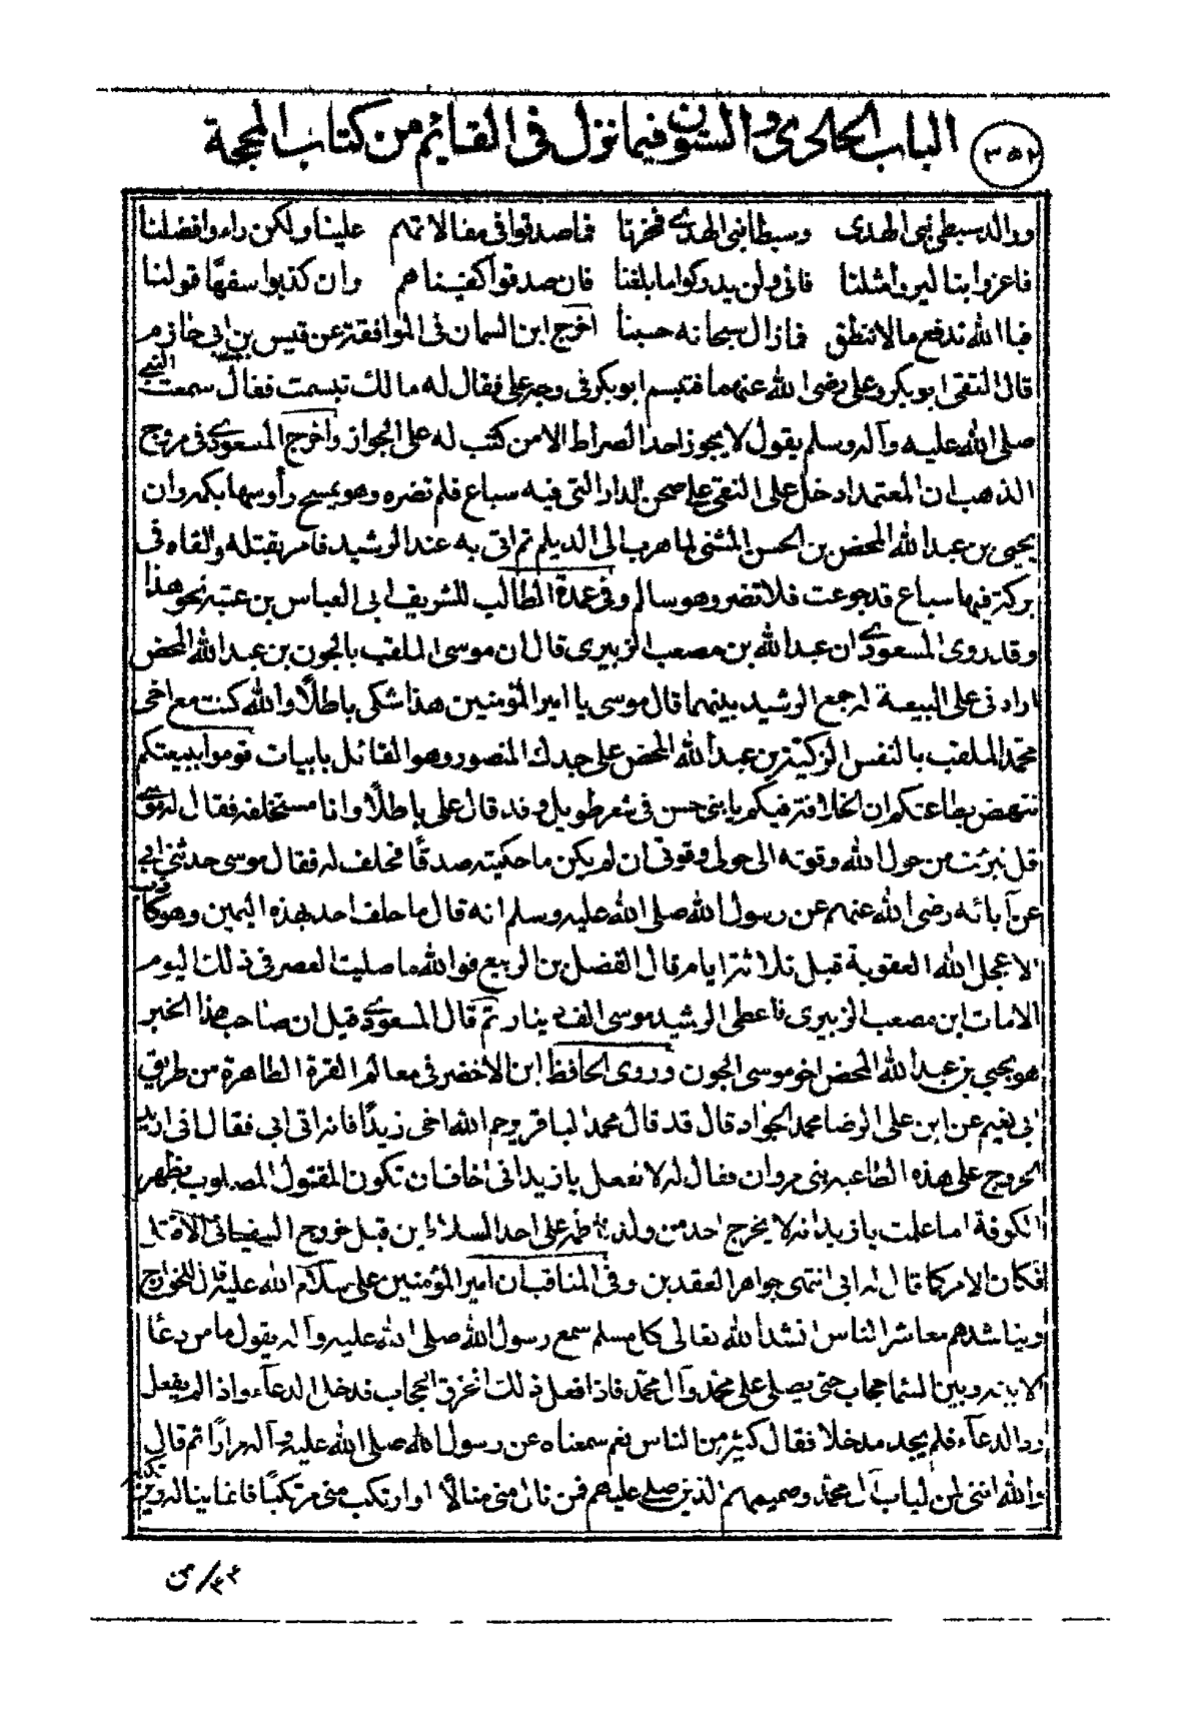 الباب الحادى والستون فيما نزل فى القائم من كتاب المحجة
٣٥٢
ووالد سبطى نبى الهدى وسبطا نبى الهدى فما صدقوا فى مقالاتهم علينا ولكن راءوا فضلنا
فانى ولن يدركوا ما بلغنا فان صدقوا كفيناهم وان كذبوا سفها قولنا
فبا الله ندفع ما لا نطق فما زال سبحانه حسبنا اخرج ابن السمان فى الموافقة عن قيس بن ابى حازم
قال التقى ابو بكر وعلى رضى الله عنهما فتبسم ابو بكر فى وجه على فقال له مالك تبسمت فقال سمعت النبى
صلى الله عليه وآله وسلم يقول لا يجوز احد الصراط الا من كتب له على الجواز واخرج المسعودى فى مروج
الذهب ان المعتمد ادخل على التقى على صحن الدار التى فيه سباع فلم تضره وهو يمسح رأوسها بكمه وان
يحيى بن عبد الله المحض بن الحسن المثنى لما هرب الى الديلم ثم اتى به عند الرشيد فامر بقتله والقاه فى
بركة فيها سباع قد جوعت فلا تضر وهو سالم وفى عمدة الطالب للشريف ابى العباس بن عتبه نحو هذا
وقد روى المسعودى ان عبد الله بن مصعب الزبيرى قال ان موسى الملقب بالجون بن عبد الله المحض
ارادنى على البيعة له جمع الرشيد بينهما قال موسى يا امير المؤمنين هذا شكى باطلا والله كنت مع اخى
محمد الملقب بالنفس الزكية بن عبد الله المحض على جدك المنصور وهو القائل بابيات قوموا ببيعتكم
ننهض بطاعتكم ان الخلافة فيكم يا بنى حسن فى شعر طويل وقد قال على باطلا وانا مستحلفه فقال له موسى
قل نبرئت من حول الله وقوته الى حولى وقوتى ان لم يكن ما حكيته صدقا فحلف له فقال موسى حدثنى ابى
عن آبائه رضى الله عنهم عن رسول الله صلى الله عليه وسلم انه قال ما حلف احد بهذه اليمين وهو كاذب
الا عجل الله العقوبة قبل ثلاثة ايام قال الفضل بن الربيع فوالله ما صليت العصر فى ذلك اليوم
الا مات ابن مصعب الزبيرى فاعطى الرشيد موسى الف دينار ثم قال المسعودى قيل ان صاحب هذا الخبر
هو يحيى بن عبد الله المحض اخو موسى الجون وروى الحافظ ابن الاخضر فى معالم القرة الطاهرة من طريق
ابى نعيم عن ابن على الرضا محمد الجواد قال قد قال محمد الباقر رحم الله اخى زيدا فانه اتى ابى فقال انى اريد
الخروج على هذه الطاغية بنى مروان فقال له لا تفعل يا زيد انى اخاف ان تكون المقتول المصلوب بظهر
الكوفة اما علمت يا زيد انه لا يخرج احد من ولد فاطمة على احد السلاطين قبل خروج السفيانى الا قتل
فكان الامر كما قال له ابى انتهى جواهر العقدين وفى المناقب ان امير المؤمنين على سلام الله عليه قال للخوارج
ويناشدهم معاشر الناس انشد الله تعالى كل مسلم سمع رسول الله صلى الله عليه وآله يقول ما من دعا
الا بينه وبين السما حجاب حتى يصلى على محمد وآل محمد فاذا فعل ذلك انخرق الحجاب فدخل الدعاء واذا لم يفعل
رد الدعاء فلم يجد مدخلا فقال كثير من الناس نعم سمعناه عن رسول الله صلى الله عليه وآله مرارا ثم قال
والله اننى لمن لباب آل محمد وصميمهم الذين صلى عليهم فمن نال منى منالا او ارتكب منى مرتكبا فانما